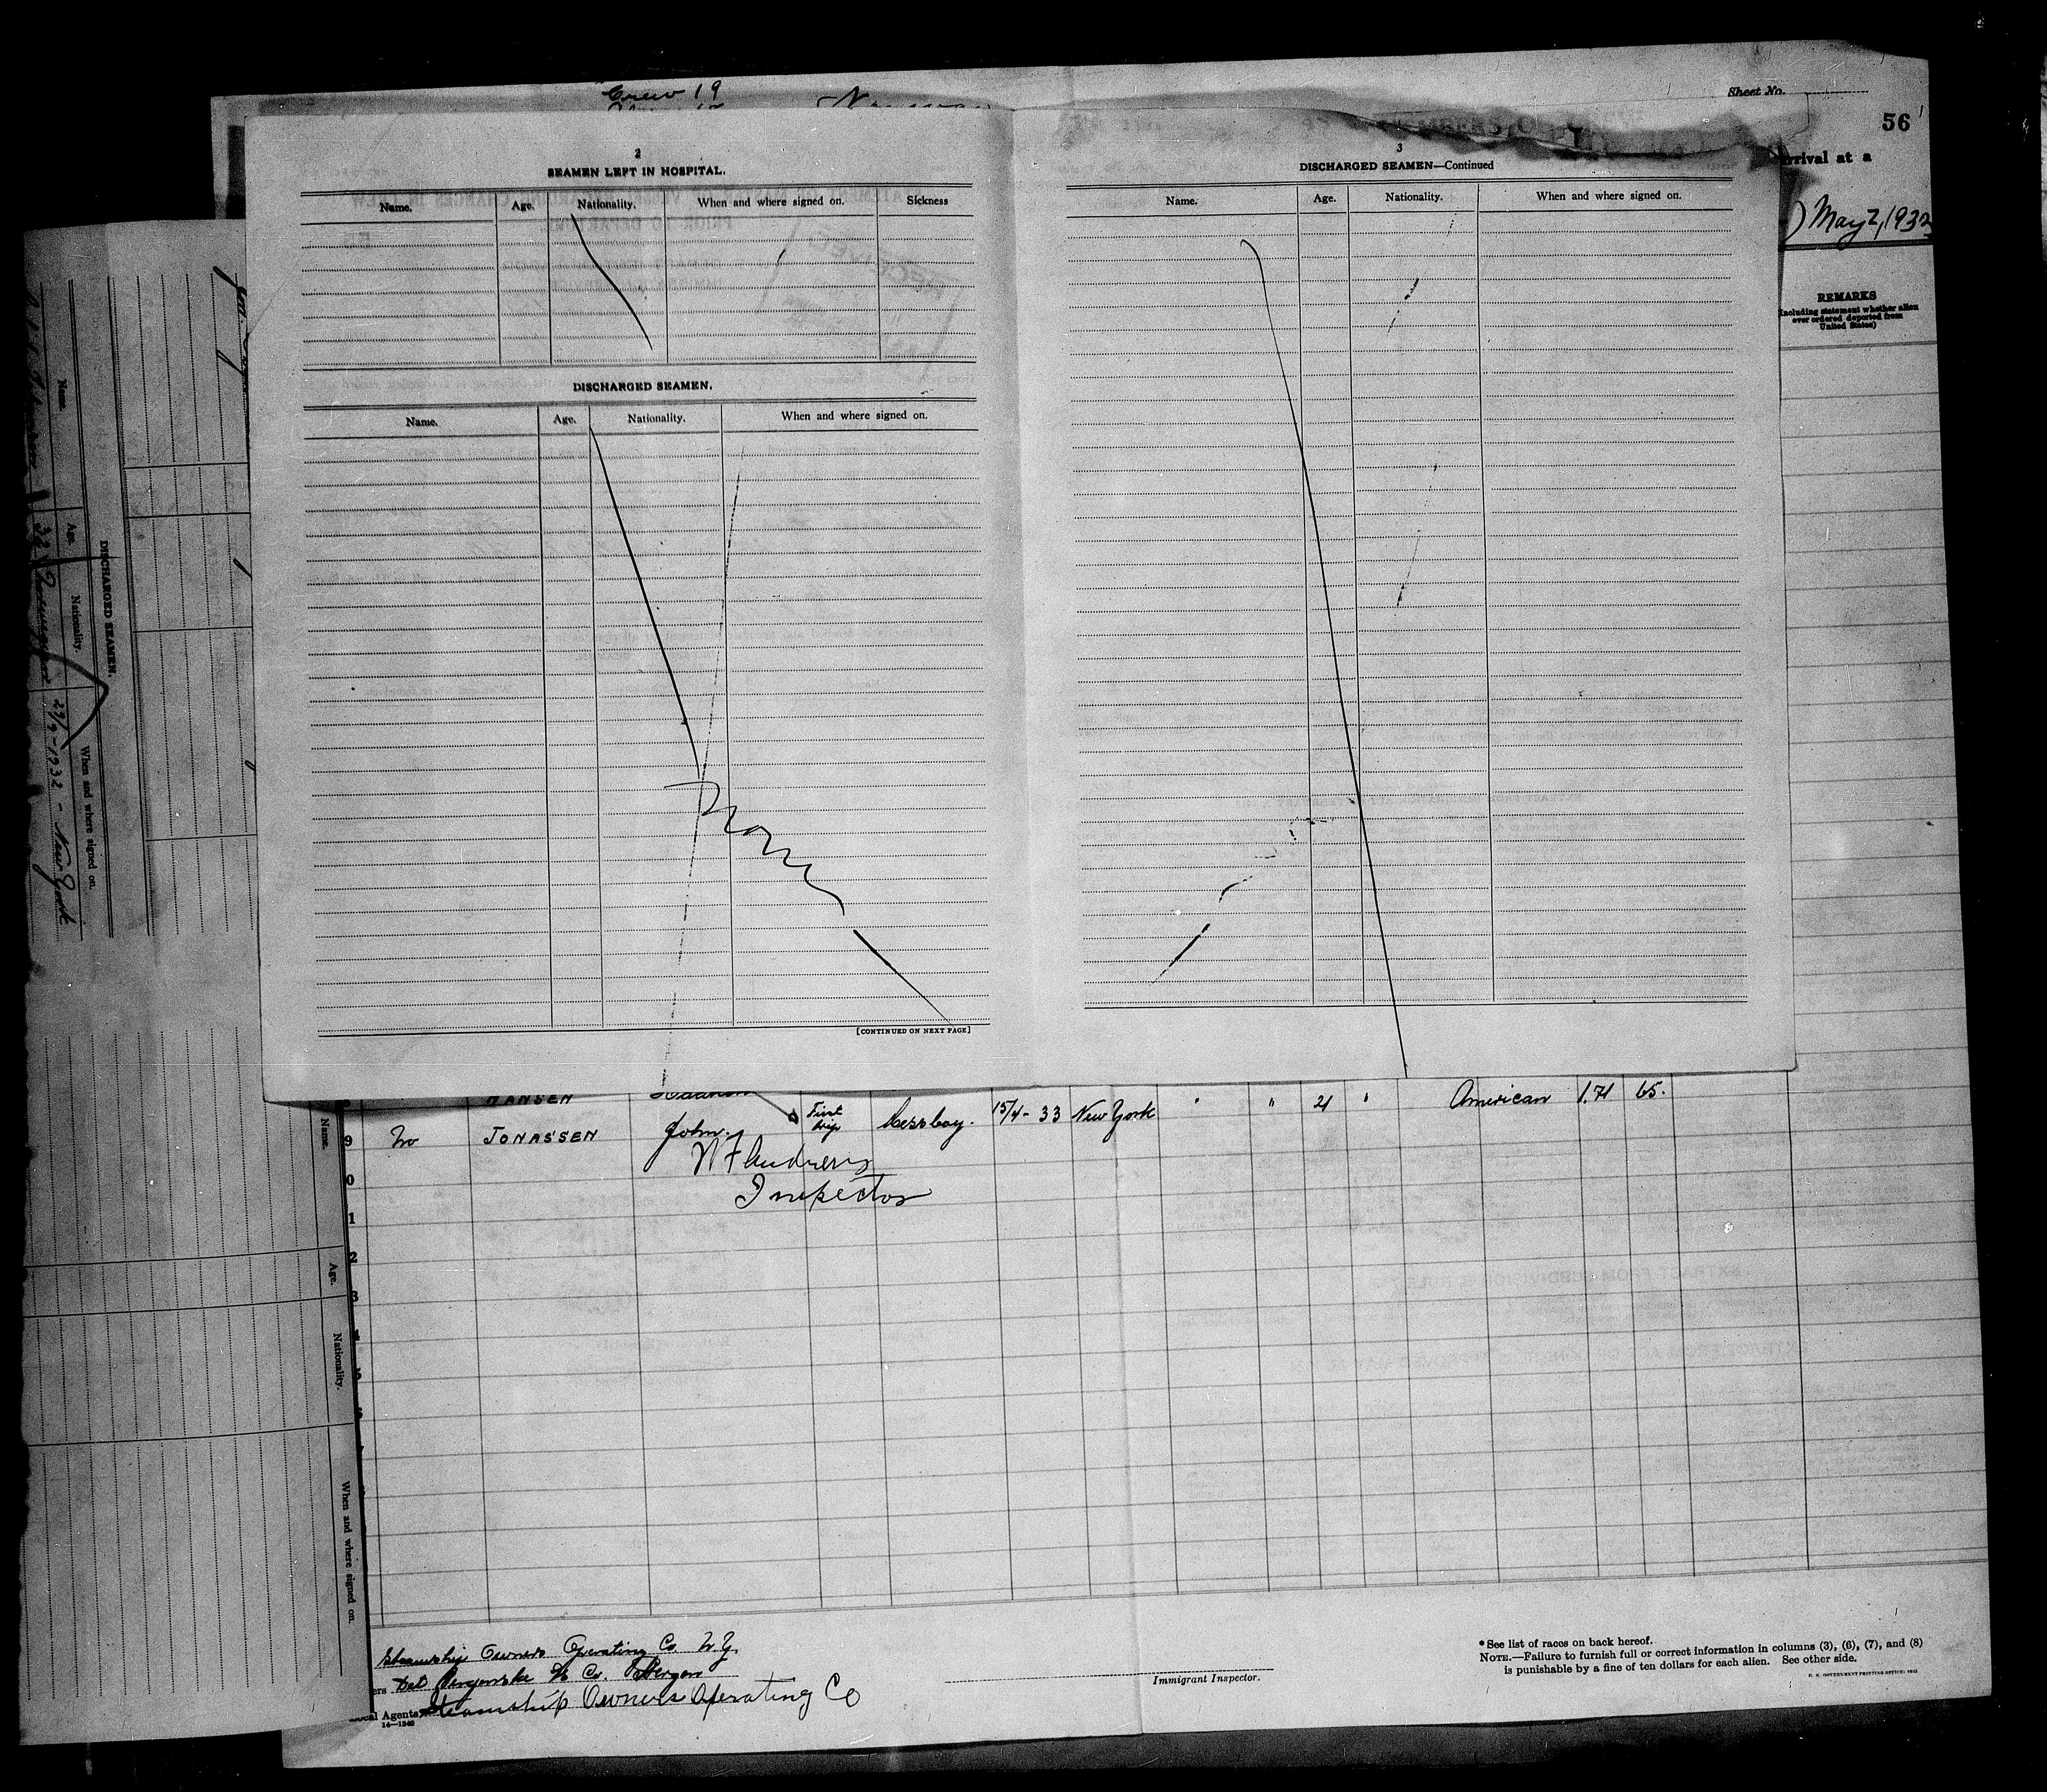 Crew 19
Sheet No.
56
arrival at a
May 2, 1932
REMARKS
(Including statement whether alien
ever ordered deported from
United States)
2
SEAMEN LEFT IN HOSPITAL.
Name. Age. Nationality. When and where signed on. Sickness
DISCHARGED SEAMEN.
Name. Age. Nationality. When and where signed on.
None
[CONTINUED ON NEXT PAGE]
3
DISCHARGED SEAMEN—Continued
Name. Age. Nationality. When and where signed on.
DISCHARGED SEAMEN.
Name. Age. Nationality. When and where signed on.
32 23/9-1932 - New York
Name. Age. Nationality. When and where signed on.
HANSEN American 1.71 65.
9 No JONASSEN John. First trip Messboy. 15/4-33 New York " " 21 "
Inspector
0
1
2
3
Steamship Owners Operating Co. N.Y.
ers Det Bergenske Co. Bergen
Local Agents Steamship Owners Operating Co
14—1240
Immigrant Inspector.
*See list of races on back hereof.
NOTE.—Failure to furnish full or correct information in columns (3), (6), (7), and (8)
is punishable by a fine of ten dollars for each alien. See other side.